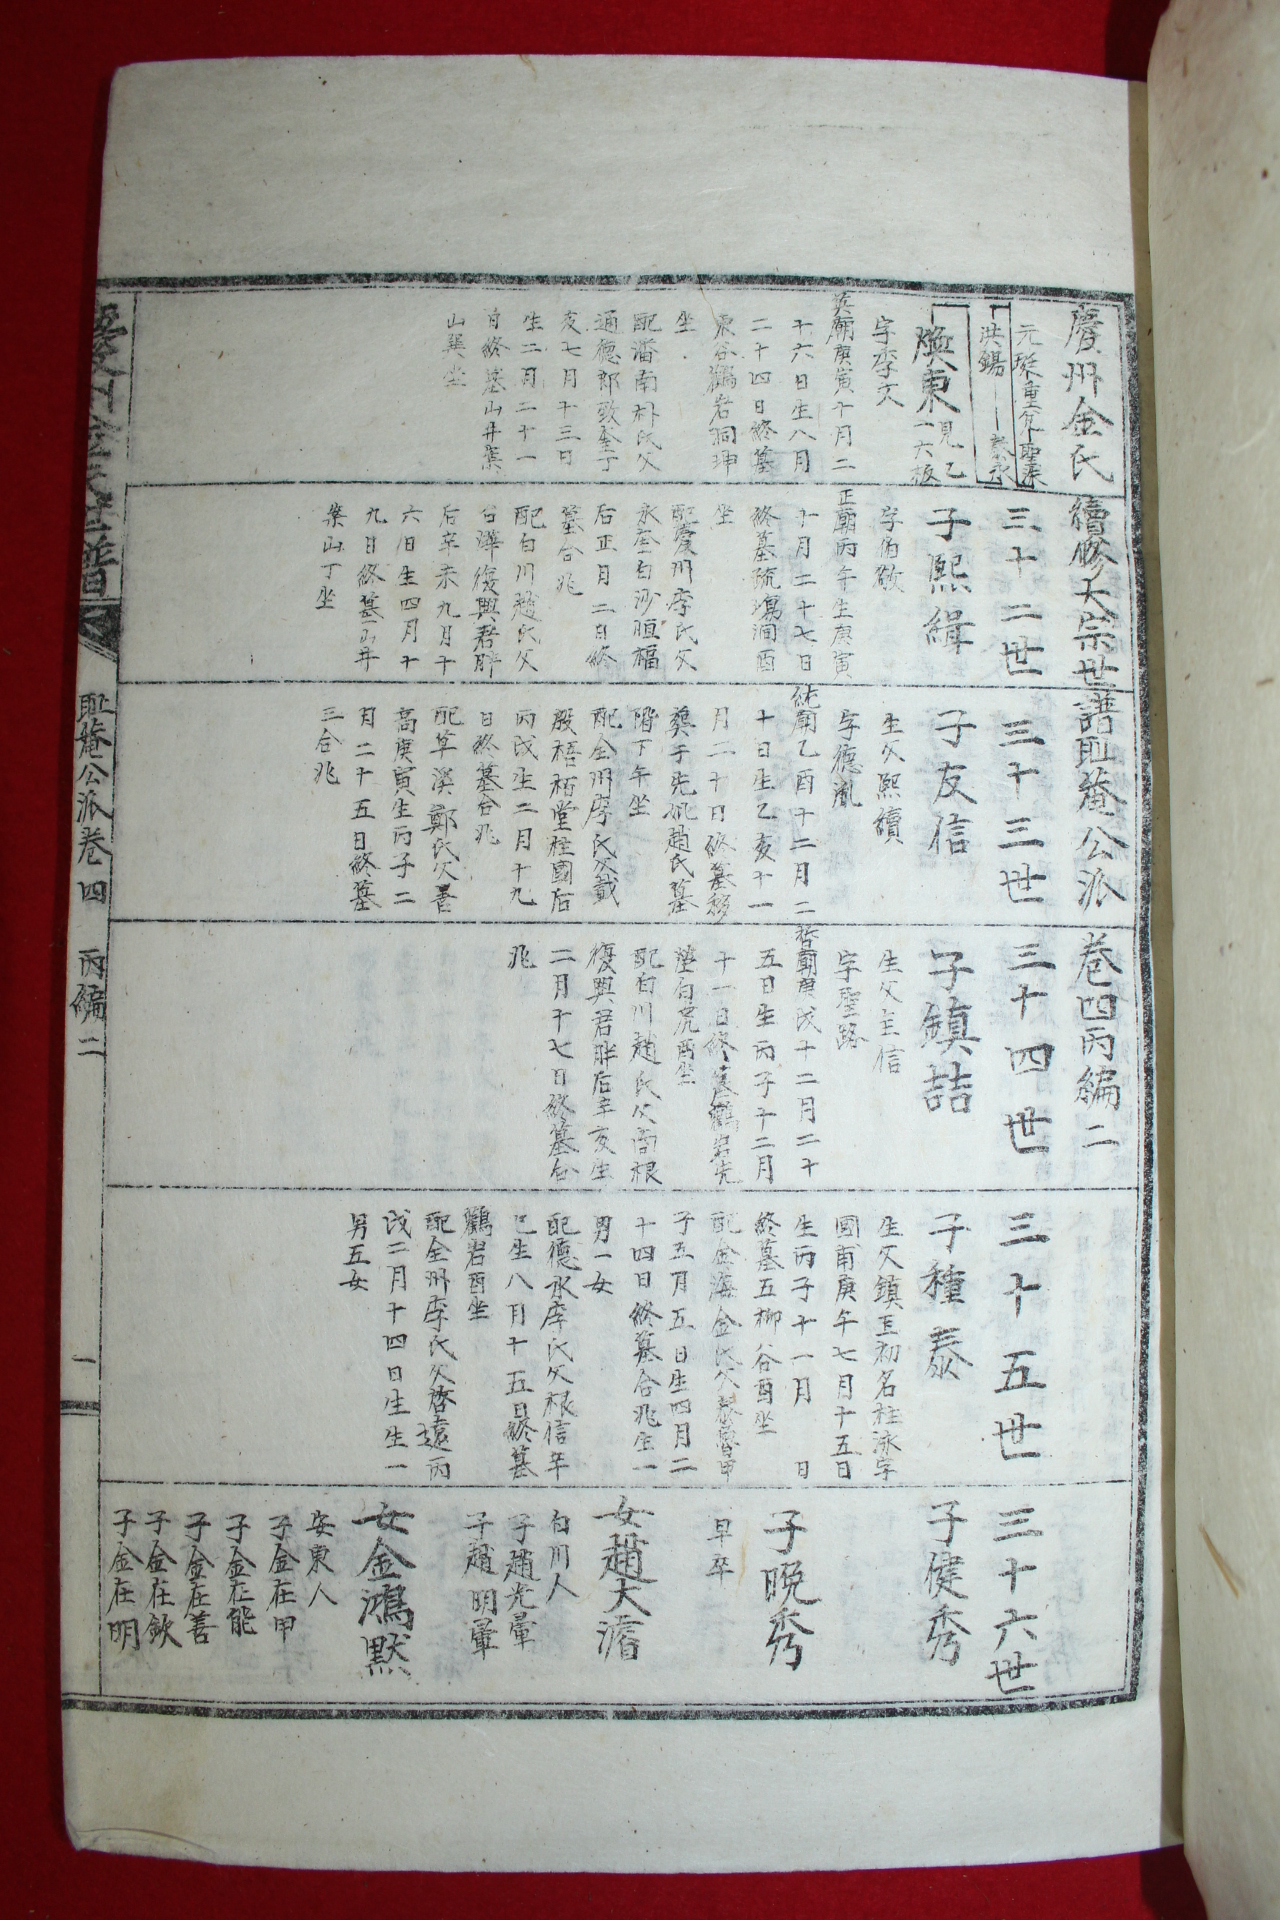 慶州金氏續修大宗世譜耻菴公派卷四丙編二
洪錫
煥東見乙一六板
字李文
英廟庚寅十月二
十六日生八月
二十四日終墓
東谷鶴岩洞坤
坐
配潘南朴氏父
通德郎致奎丁
亥七月十三日
生二月二十一
日終墓山井集
山巽坐
三十二世
子熙緝
字伯敬
正廟丙午生庚寅
十月二十七日
坐
配慶州李氏父
后正月二日終
墓合兆
配白川趙氏父
台澤復興君胖
后辛未九月十
六日生四月十
九日終墓山井
集山丁坐
三十三世
子友信
生父熙績
字德胤
純廟乙酉十二月二
十日生乙亥十一
月二十日終墓移
葬于先妣趙氏墓
階下午坐
配全州李氏父載
殷梧栢堂柱國后
丙戌生二月十九
日終墓合兆
配草溪鄭氏父書
高庚寅生丙子二
月二十五日終墓
三合兆
三十四世
子鎮喆
生父主信
字聖路
哲廟庚戌十二月二十
五日生丙子十二月
十一日終墓鶴岩先
塋白虎酉坐
配白川趙氏父尚根
復興君胖后辛亥生
二月十七日終墓合
兆
三十五世
子種泰
生父鎮互初名柱泳字
國甫庚午七月十五日
生丙子十一月 日
終墓五柳谷酉坐
子五月五日生四月二
十四日終墓合兆生一
男一女
配德水李氏父根信辛
巳生八月十五日終墓
鶴岩酉坐
配全州李氏父啓遠丙
戌二月十四日生生一
男五女
三十六世
子健秀
子晚秀
早卒
女趙大濬
白川人
子趙光暈
子趙明暈
女金鴻默
安東人
子金在甲
子金在能
子金在善
子金在欽
子金在明
慶州金氏世譜
耻菴公派卷四 丙編二
一